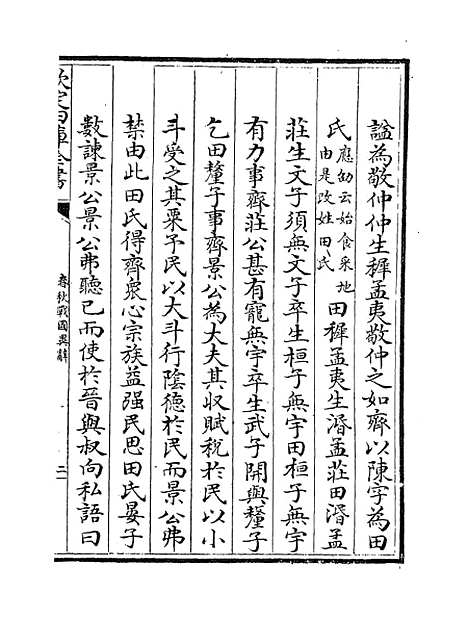 謚為敬仲仲生穉孟夷敬仲之如齊以陳字為田
氏應劭云始食采地由是改姓田氏田穉孟夷生湣孟莊田湣孟
莊生文子須無文子卒生桓子無宇田桓子無宇
有力事齊莊公甚有寵無宇卒生武子開與釐子
乞田釐子事齊景公為大夫其收賦稅於民以小
斗受之其粟予民以大斗行陰德於民而景公弗
禁由此田氏得齊衆心宗族益强民思田氏晏子
數諫景公景公弗聽已而使於晉與叔向私語曰
欽定四庫全書
春秋戰國異辭